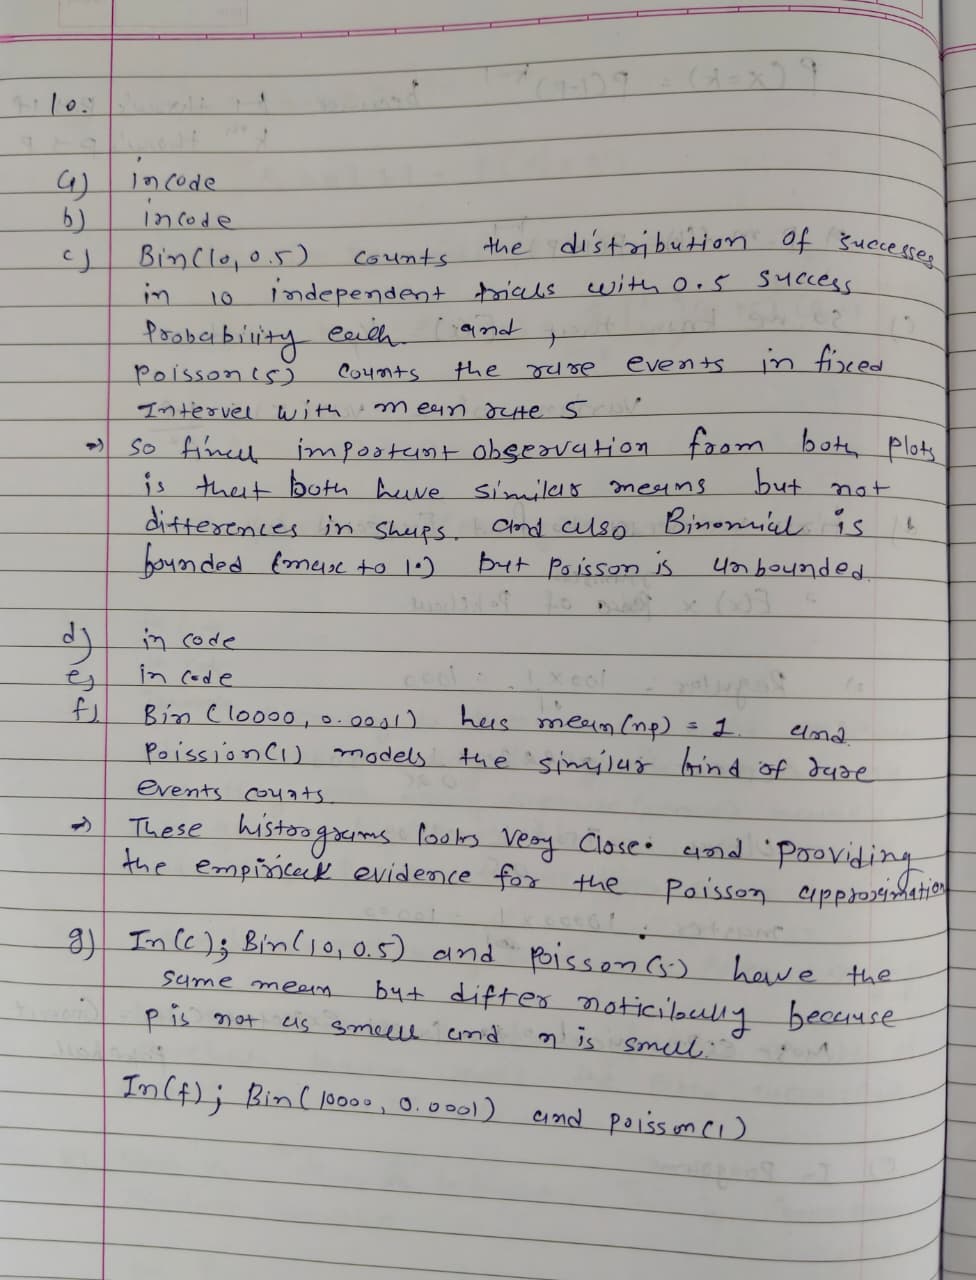 10.
a) in code
b) in code
c) Bin(10, 0.5) counts the distribution of successes
in 10 independent trials with 0.5 success
Probability each and,
Poisson(5) counts the rare events in fixed
Intervel with mean rate 5
⇒ so final important observation from both plots
is that both have similar means but not
differences in shaps. and also Binomial is
bounded (max to 10) but Poisson is unbounded.
d) in code
e) in code
f) Bin (10000, 0.0001) has mean(np) = 1. and
Poission(1) models the similar kind of rare
events counts.
⇒ These histrograms looks very close. and providing
the empirical evidence for the Poisson approximation
g) In(c); Bin(10, 0.5) and Poisson(5) have the
same mean but differ noticibally because
p is not as small and n is small.
In(f); Bin(10000, 0.0001) and poisson(1)